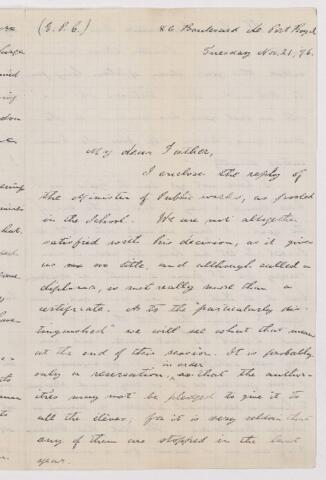 (E.P.C.) 86 Boulevard de Port Royal
Tuesday Nov. 21, 76.
My dear Father,
I enclose the reply of
the Minister of Public works, as posted
in the School. We are not altogether
satisfied with his decision, as it gives
us no title, and although called a
diploma, is not really more than a
certificate. As to the "particularly dis-
tinguished" we will see what that means
at the end of this session. It is probably
only a reservation, in order that the author-
ities may not be pledged to give it to
all the élèves; for it is very seldom that
any of them are stopped in the last
year.